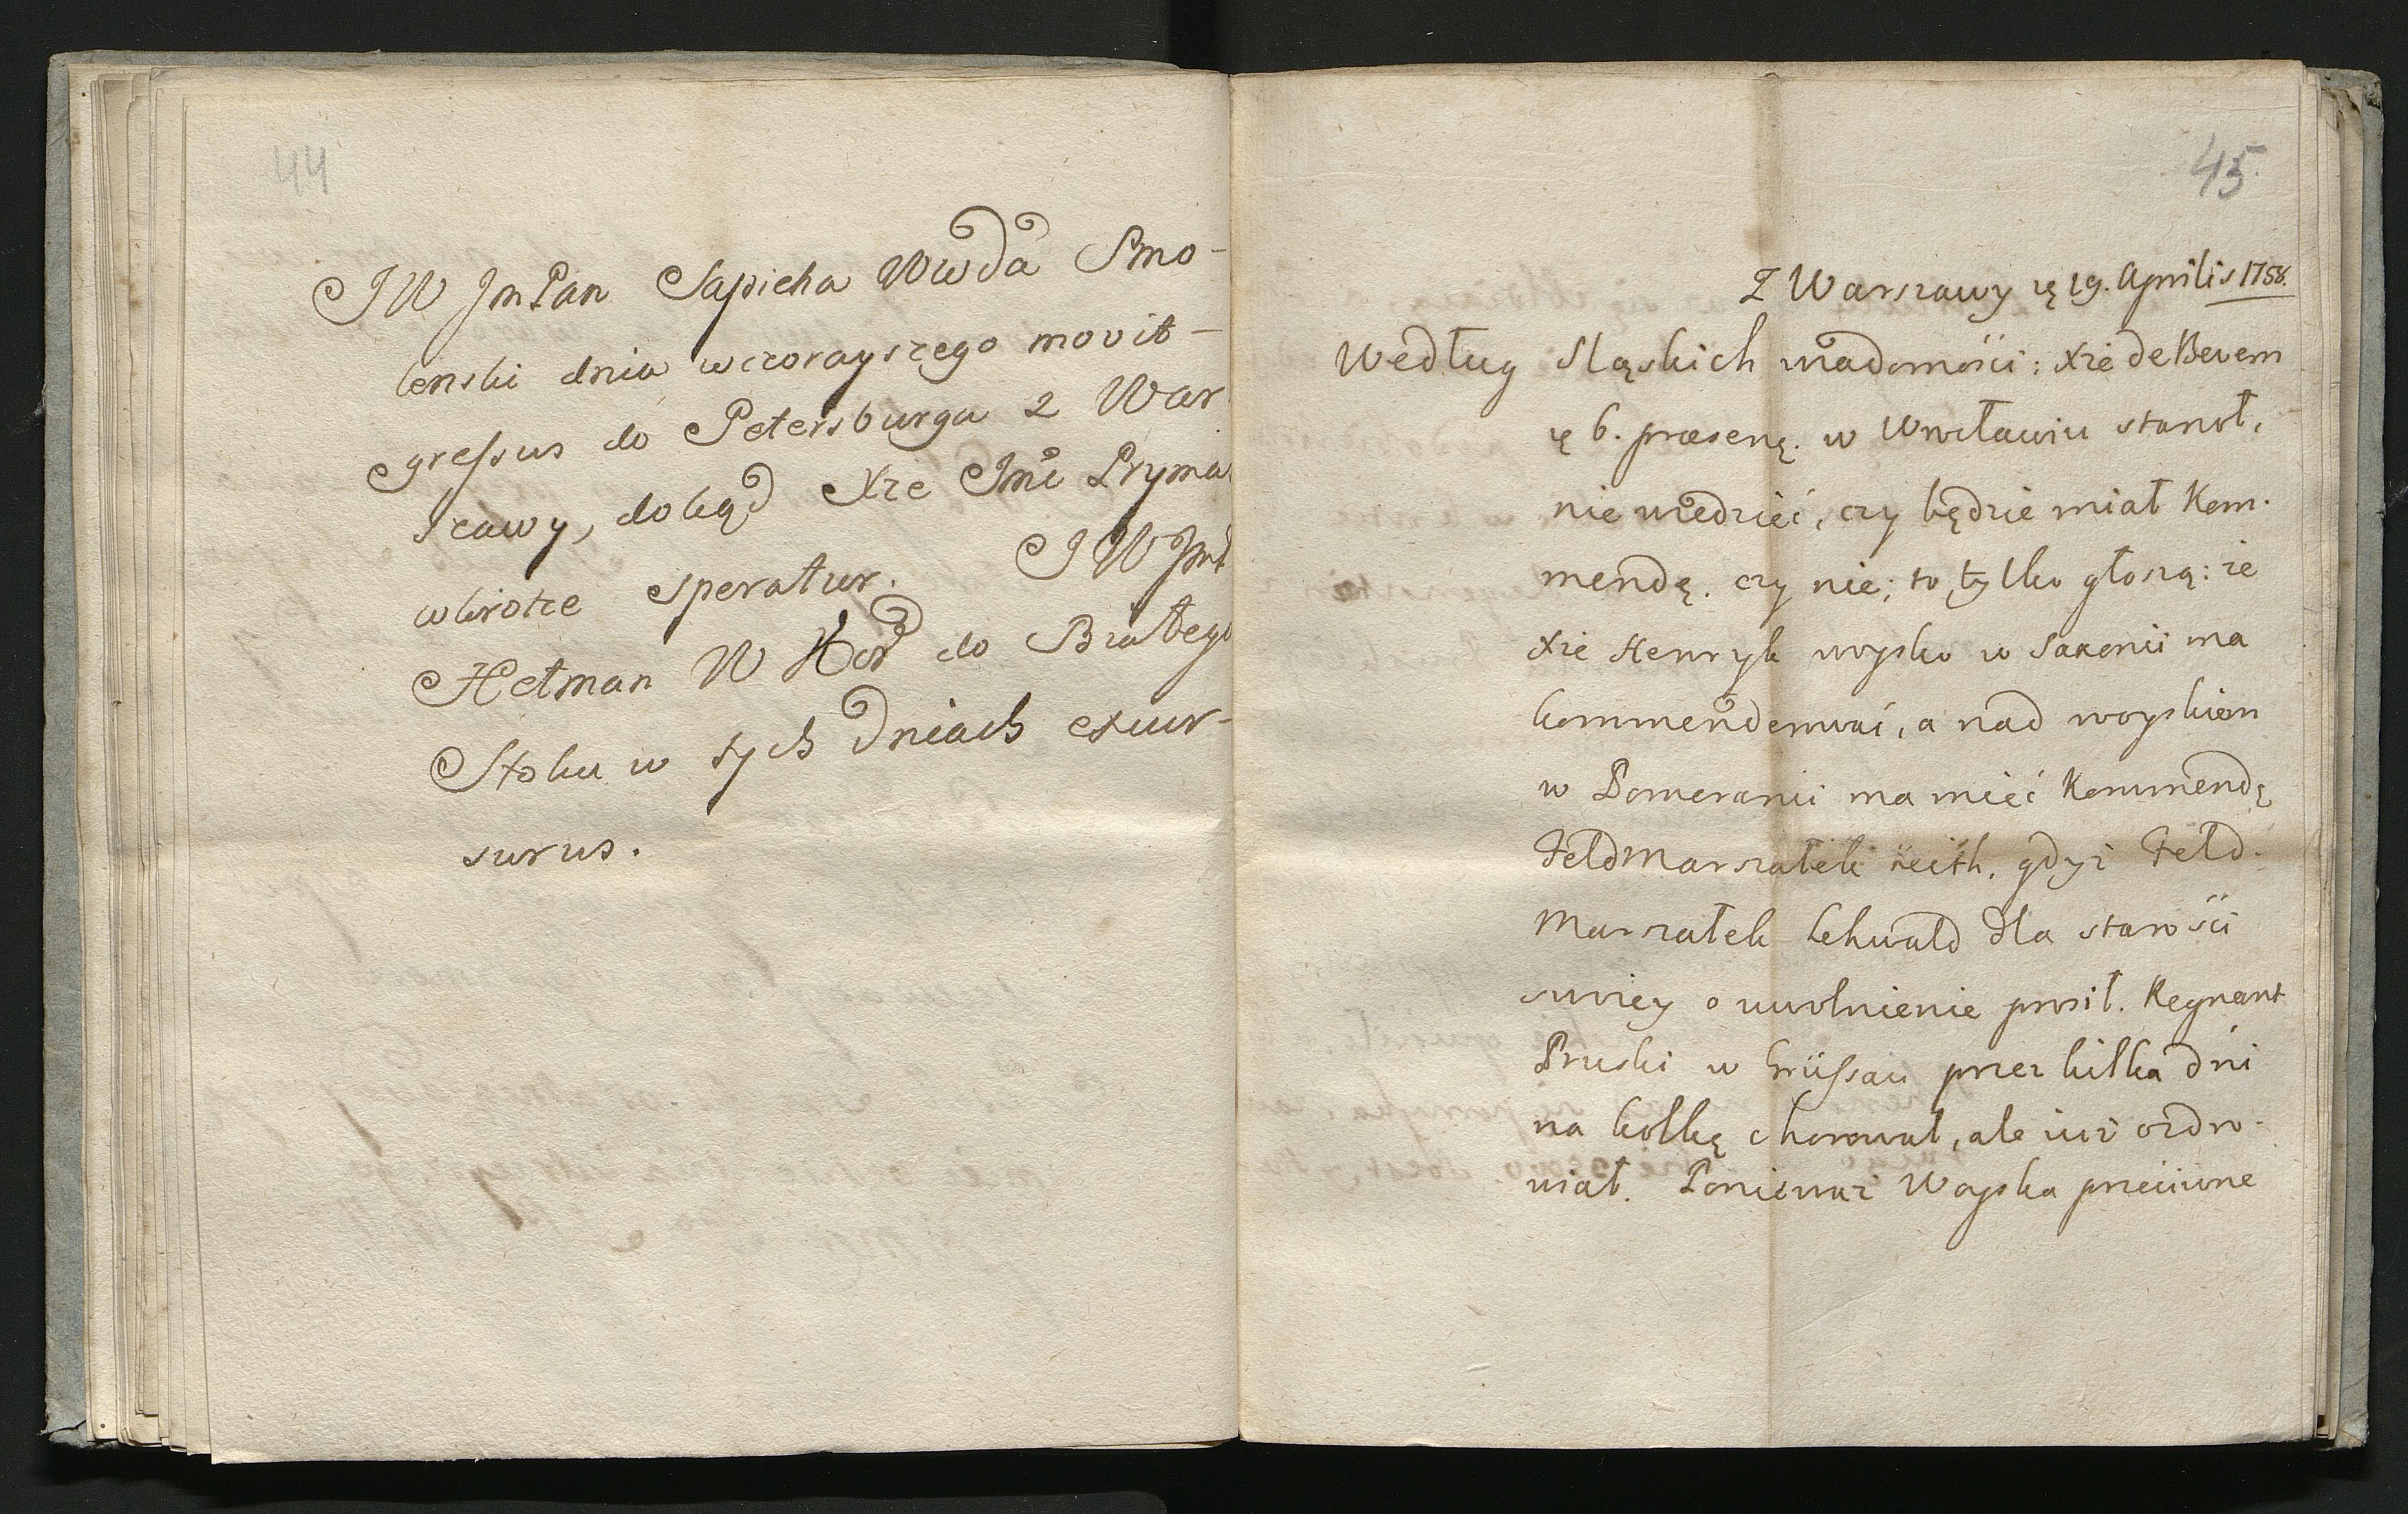 44
JW JmPan Sapieha Wwda Smo-
lenski dnia wczorayszego movit-
gressus do Petersburga z War
szawy, dokąd Xże Jmć Pryma
wkrotce speratur. JW Jmć
Hetman W Kor do Białego
Stoku w tych dniach excur-
surus.
45.
Z Warszawy ię 19. Aprilis 1758.
Według Sląskich wiadomości: Xże de Bevern
ię 6. præsenę. w Wrocławiu stanoł,
nie wiedzieć, czy będzie miał Kom-
mendę. czy nie; to tylko głoszą: że
Xże Henryk woysko w Saxonii ma
kommenderować, a nad woyskiem
w Pomeranii ma mieć Kommendę
Feldmarszałek Keith. gdyż Feld-
Marszałek Lehwald dla starości
swoiey o uwolnienie prosił. Regnant
Pruski w Grüssau przez kilka dni
na kolkę chorował, ale iuż ozdro-
wiał. Ponieważ Woyska przeciwne